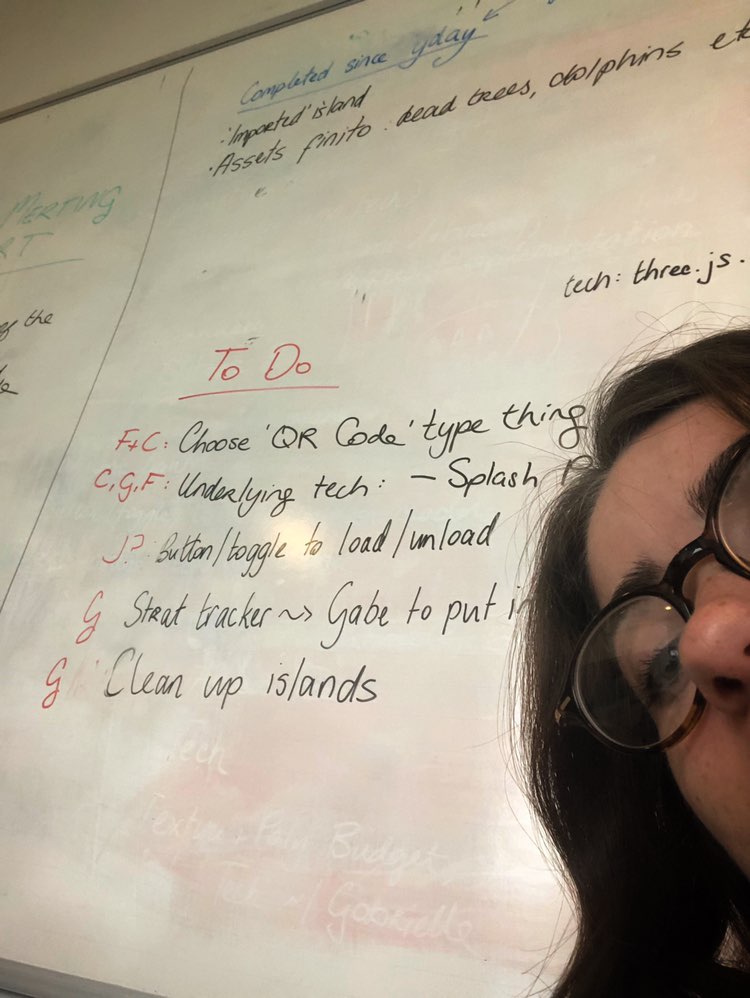 Completed since yday
• 'Imported' island
• Assets finito: dead trees, dolphins etc
MEETING
RT
of the
tech: three.js.
To Do
F+C: Choose 'QR Code' type thing
C,G,F: Underlying tech: – Splash
J?: Button/toggle to load/unload
G Strat tracker ~> Gabe to put in
G Clean up islands
Tech
Budget
Tech
Gabrielle